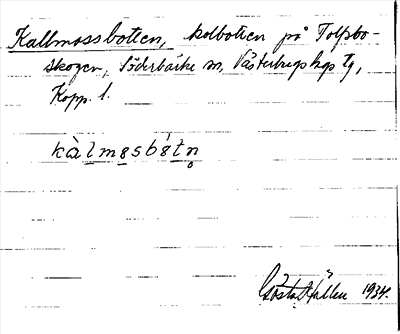 Kallmossbotten, kolbotten på Tolfsbo-
skogen, Söderbärke sn, Västerbergs lags tg,
Kopp. l.
kàlmǝsbǝ́tn̥
Gösta Hallén 1934.